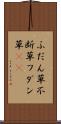 ふだん草不
断草フダン
草